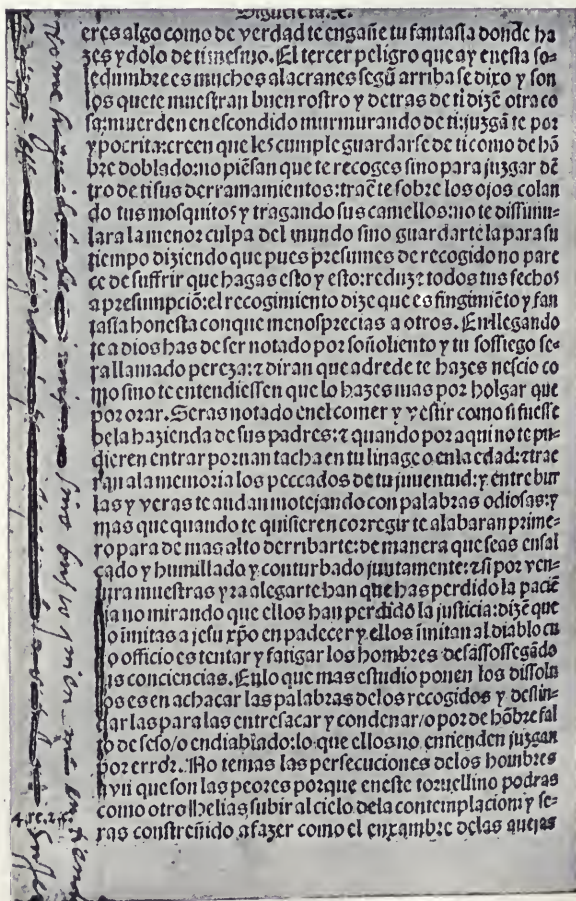 eres algo como de verdad te engañe tu fantasia donde ha
zes ydolo de ti mesmo. El tercer peligro que ay enesta so
ledumbre es muchos alacranes segũ arriba se dixo y son
los que te muestran buen rostro y detras de ti dizẽ otra co
sa: muerden en escondido murmurando de ti: juzgã te por
ypocrita: creen que les cumple guardarse de ti como de hõ
bre doblado: no piẽsan que te recoges sino para juzgar dẽ
tro de ti sus derramamientos: traẽ te sobre los ojos colan
do tus mosquitos y tragando sus camellos: no te dissimu-
lara la menor culpa del mundo sino guardartela para su
tiempo diziendo que pues presumes de recogido no pare
ce de suffrir que hagas esto y esto: reduzẽ todos tus fechos
a presumpciõ: el recogimiento dize que es fingimiẽto y fan
tasia honesta con que menosprecias a otros. En llegando
te a dios has de ser notado por soñoliento y tu sossiego se-
ra llamado pereza: ⁊ diran que adrede te hazes nescio co
mo sino te entendiessen que lo hazes mas por holgar que
por orar. Seras notado enel comer y vestir como si fuesse
dela hazienda de sus padres: ⁊ quando por aqui no te pu-
dieren entrar pornan tacha en tu linage o enla edad: ⁊ trae
ran ala memoria los peccados de tu juuentud: y entre bur
las y veras te andan motejando con palabras odiosas: y
mas que quando te quisieren corregir te alabaran prime-
ro para de mas alto derribarte: de manera que seas ensal
çado y humillado y conturbado juntamente: ⁊ si por ven-
tura muestras yra alegarte han que has perdido la paciẽ
cia no mirando que ellos han perdido la justicia: dizẽ que
no imitas a jesu xp̃o en padecer y ellos imitan al diablo cu
yo officio es tentar y fatigar los hombres desassossegãdo
sus conciencias. En lo que mas estudio ponen los dissolu
tos es en achacar las palabras delos recogidos y deslin-
dar las para las entresacar y condenar/o por de hõbre fal
to de seso/o endiablado: lo que ellos no entienden juzgan
por error. No temas las persecuciones delos hombres
que son las peores porque en este toruellino podras
4.re.2.
como otro Helias subir al cielo dela contemplacion: y se-
ras constreñido a fazer como el enxambre delas auejas